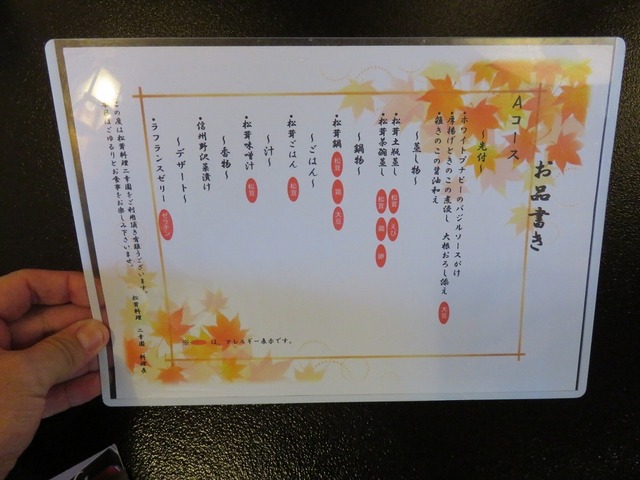 お品書き
Aコース
～先付～
・ホワイトブナピーのバジルソースがけ
・厚揚げときのこの煮浸し 大根おろし添え 大豆
・雑きのこの醤油和え
～蒸し物～
・松茸土瓶蒸し 松茸 えび
・松茸茶碗蒸し 松茸 鶏 卵
～鍋物～
・松茸鍋 松茸 鶏 大豆
～ごはん～
・松茸ごはん 松茸
～汁～
・松茸味噌汁 松茸
～香物～
・信州野沢菜漬け
～デザート～
・ラフランスゼリー ゼラチン
この度は松茸料理二幸園をご利用頂き有難うございます。
ごゆるりとお食事をお楽しみ下さいませ。
松茸料理 二幸園 料理長
※ は、アレルギー表示です。